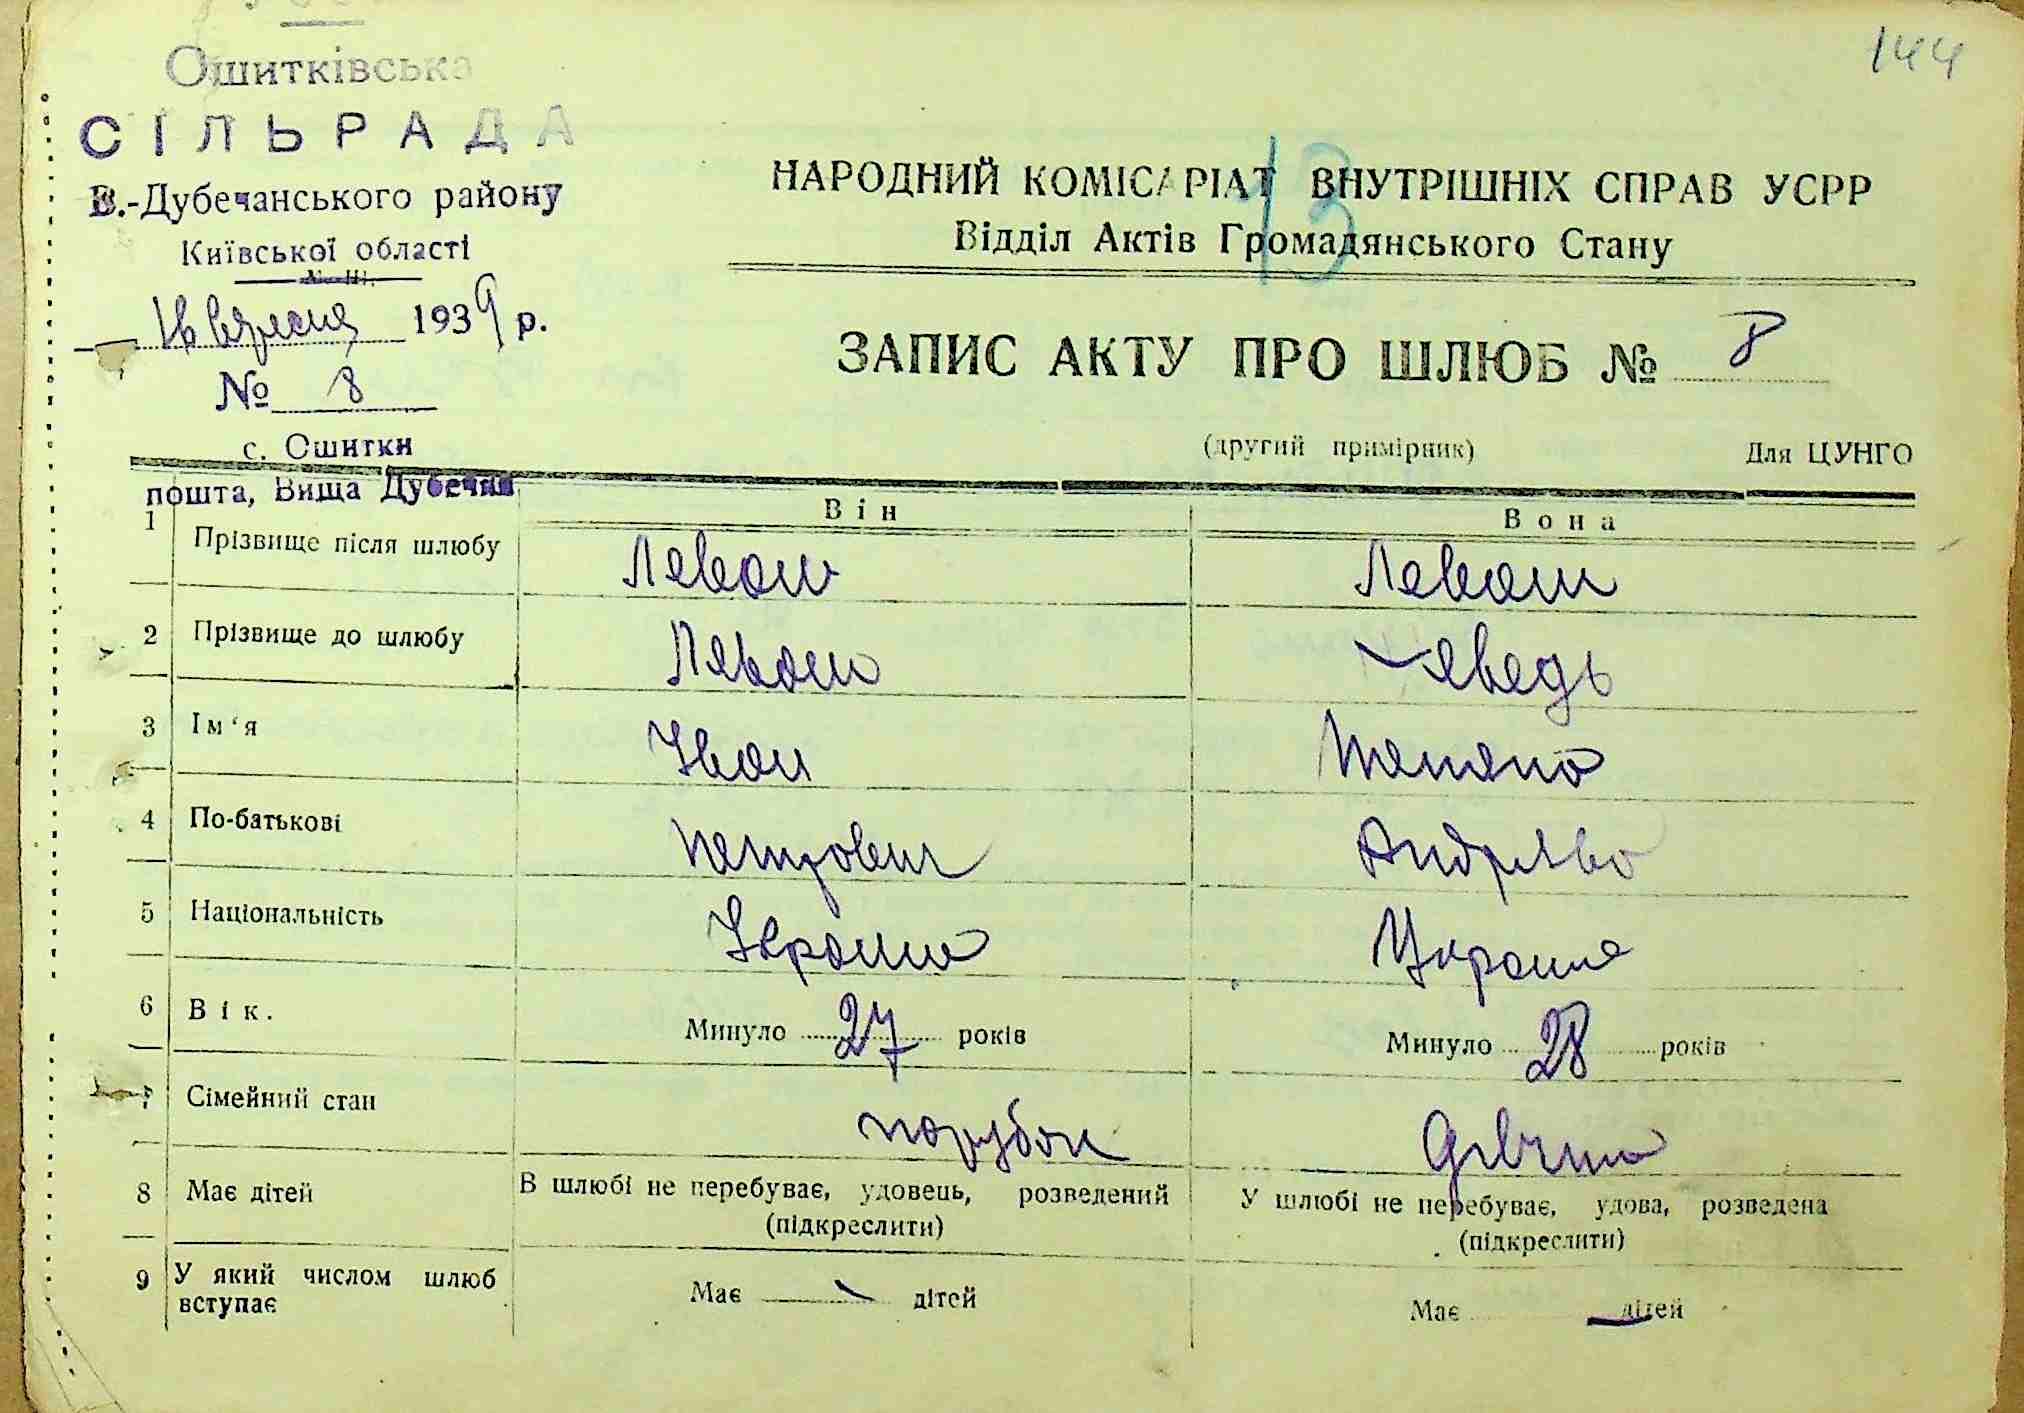 144
Ошитківська
СІЛЬРАДА
В.-Дубечанського району
Київської області
16 вересня 1939 р.
№ 8
с. Ошитки
пошта, Вища Дубечня
13
НАРОДНИЙ КОМІСАРІАТ ВНУТРІШНІХ СПРАВ УСРР
Відділ Актів Громадянського Стану
ЗАПИС АКТУ ПРО ШЛЮБ № 8
(другий примірник) Для ЦУНГО
Він Вона
1 Прізвище після шлюбу Леваш Леваш
2 Прізвище до шлюбу Леваш
3 Ім'я Іван Тетяна
4 По-батькові Петрович
5 Національність
6 Вік. Минуло 27 років Минуло 28 років
7 Сімейний стан парубок дівчина
8 Має дітей В шлюбі не перебуває, удовець, розведений У шлюбі не перебуває, удова, розведена
(підкреслити) (підкреслити)
9 У який числом шлюб
вступає Має дітей Має дітей